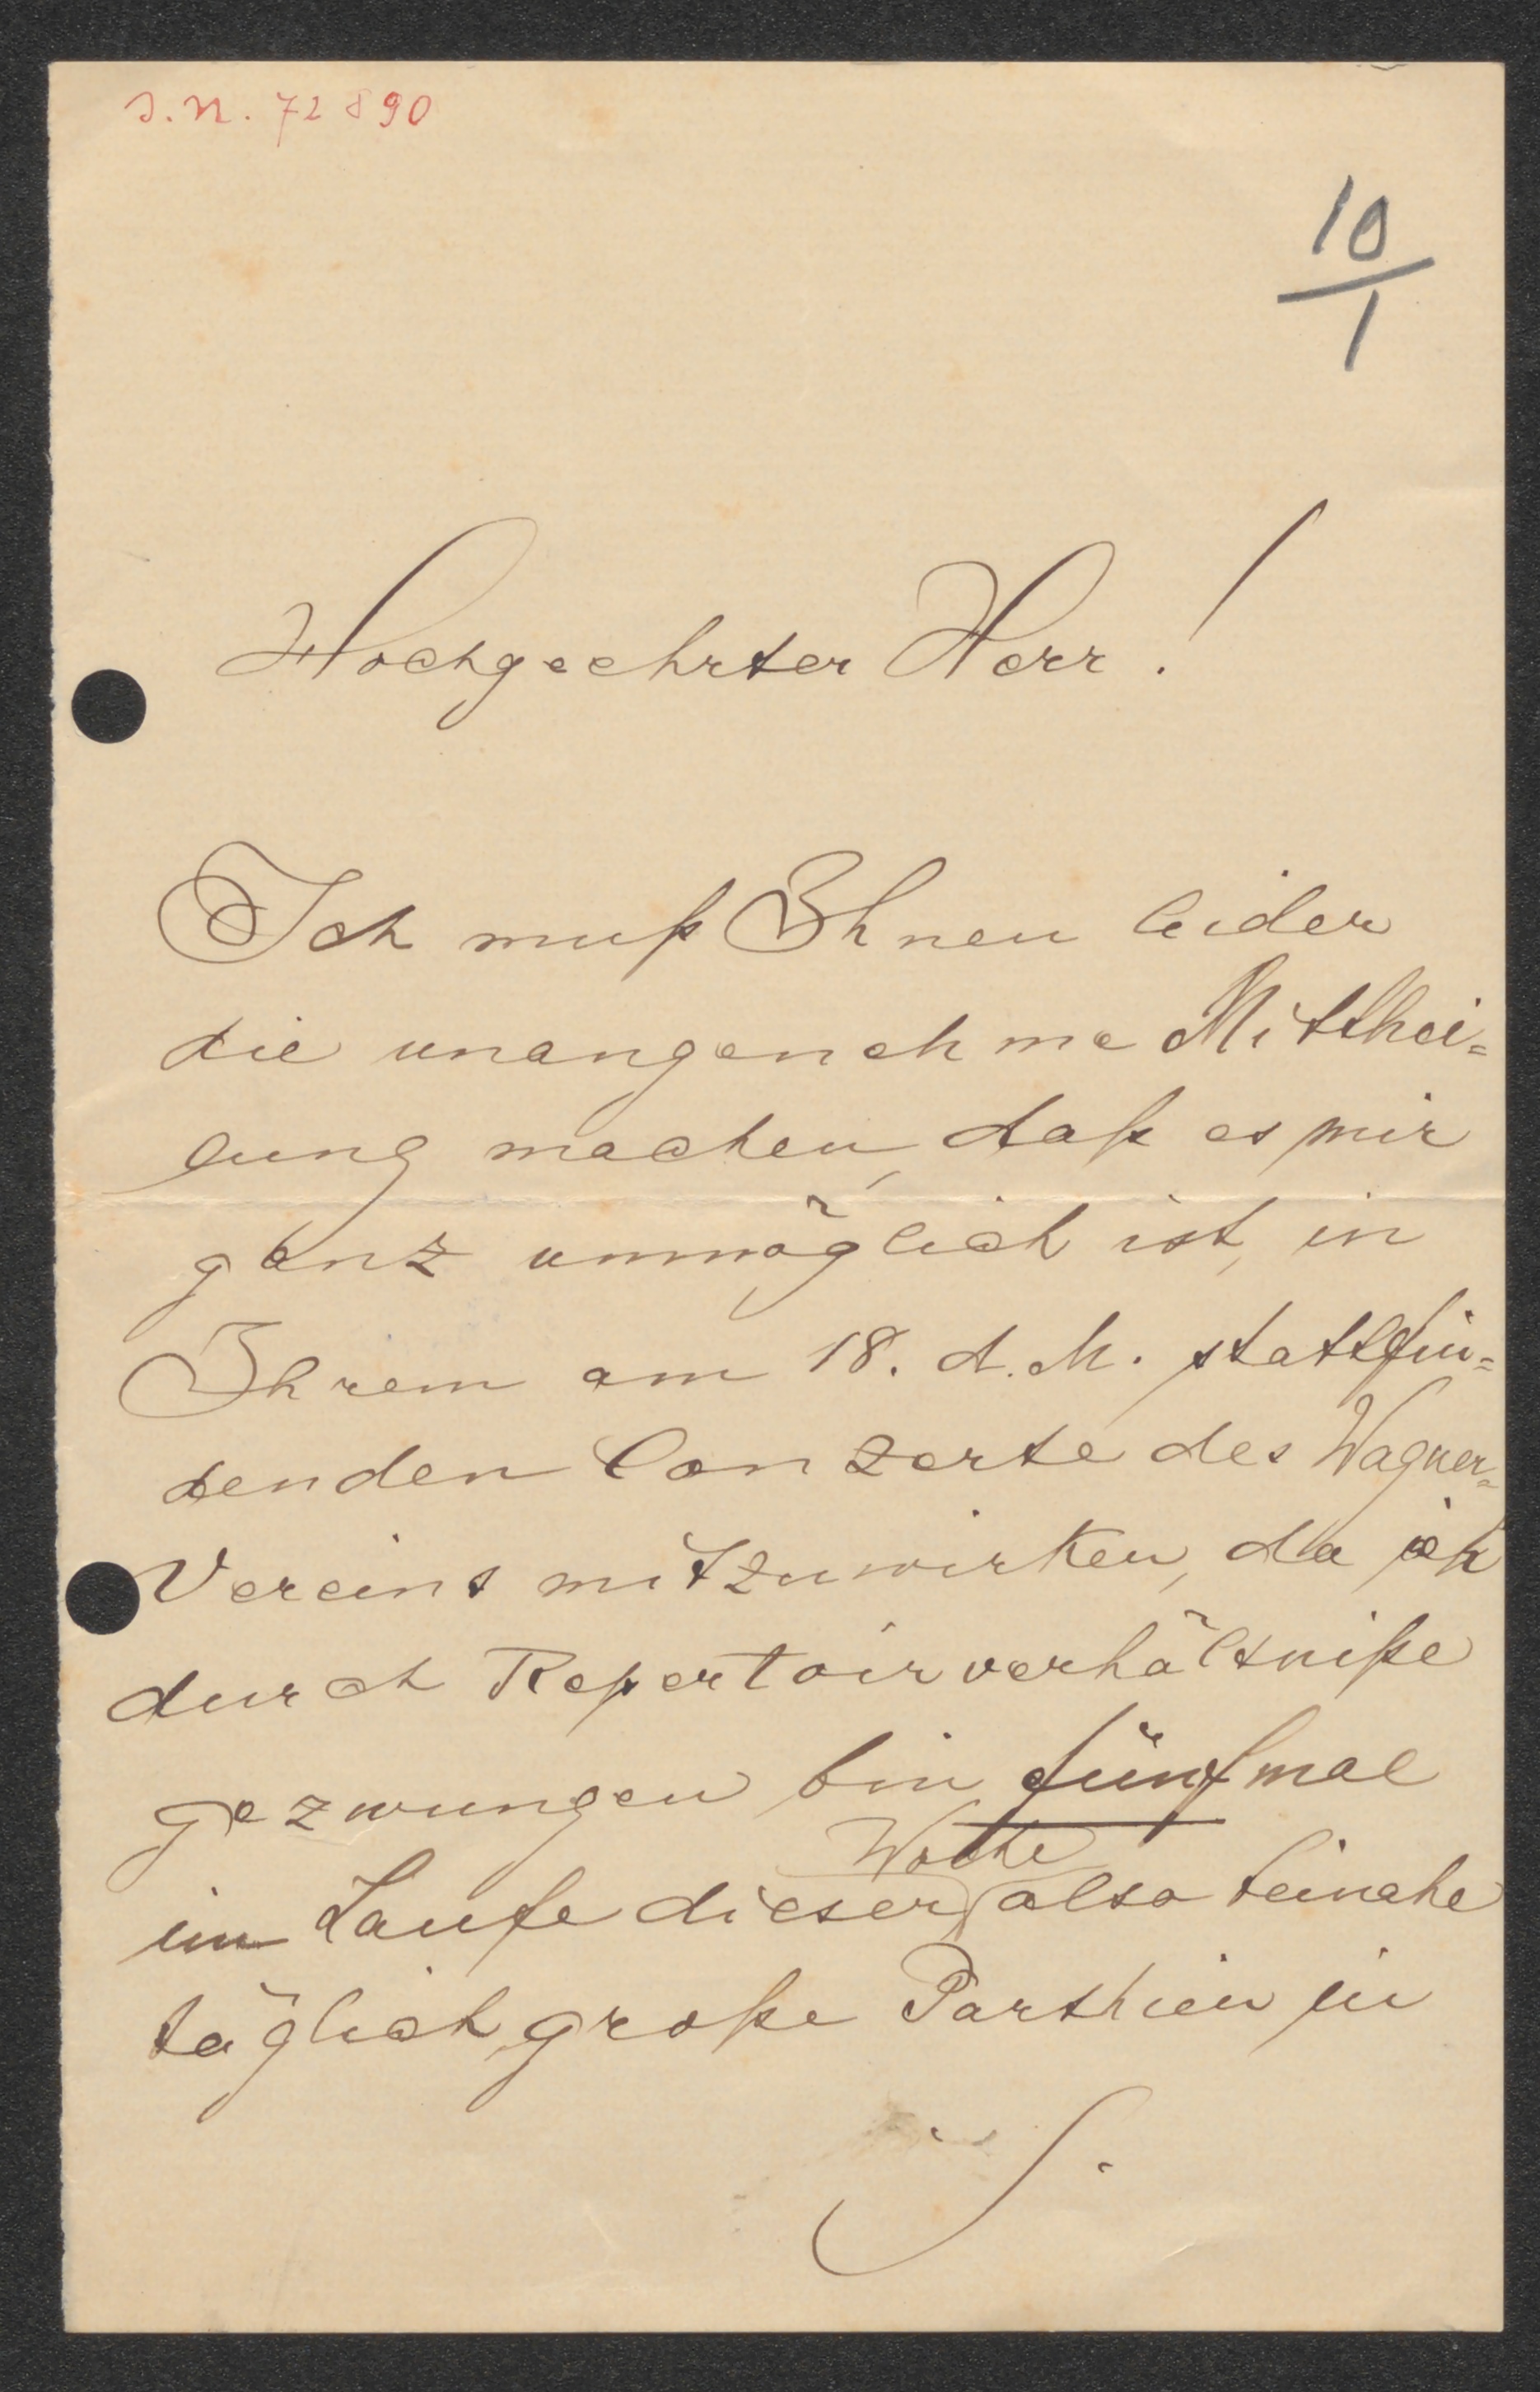 J.N. 72890
10
1
Hochgeehrter Herr!
Ich muß Ihnen leider
die unangenehme Mitthei=
lung machen, daß es mir
ganz unmöglich ist, in
Ihrem am 18. d. M. stattfin=
denden Conzerte des Wagner=
Vereins mitzuwirken, da ich
durch Repertoirverhältniße
gezwungen bin fünfmal
Woche
im Laufe dieser also beinahe
täglich, große Parthien zu